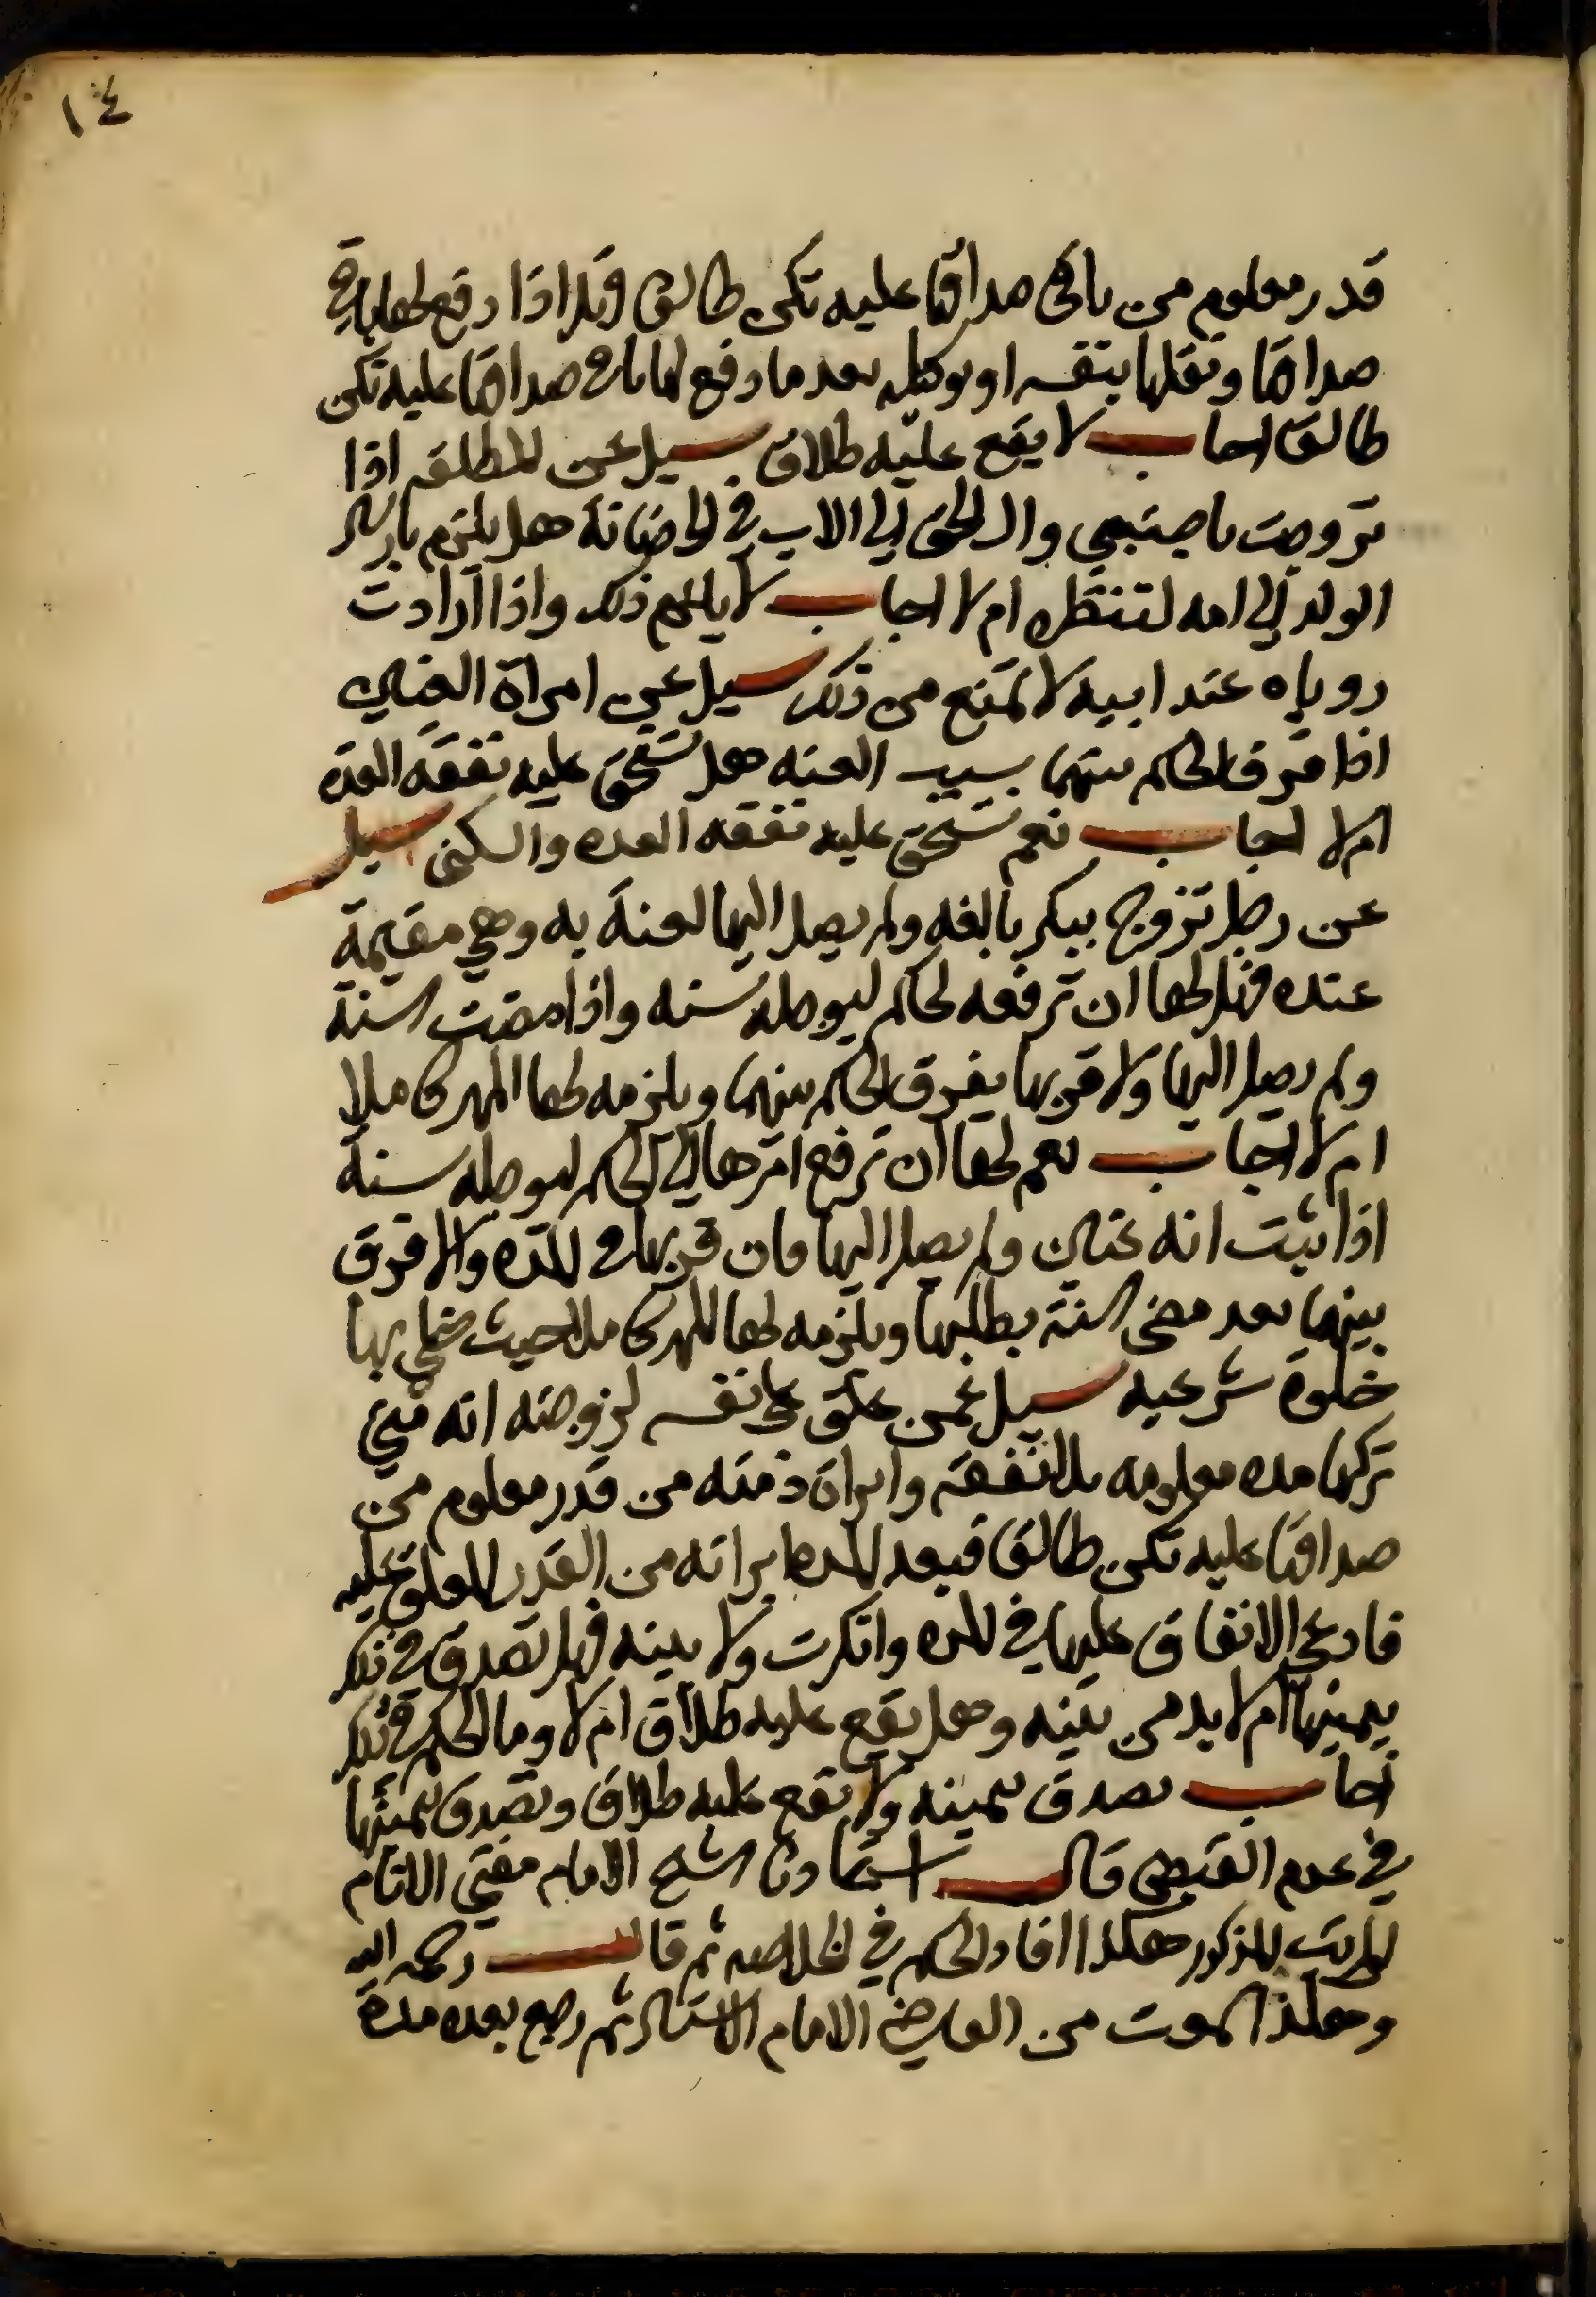 ١٤
قدر معلوم من باقي صداقها عليه تكن طالق وقد اذا دفع لها باقي
صداقها ونقلها بنفسه او بوكيله بعد ما دفع لها باقي صداقها عليه تكن
طالق اجاب لا يقع عليه طلاق سيل عن المطلقه اذا
تزوجت باجنبي والحق الي الاب في الحضانة هل يلزم بارسال
الولد الي امه لتنظره ام لا اجاب لا يلزم ذلك واذا ارادت
روياه عند ابيه لا تمنع من ذلك سيل عن امراة العنين
اذا فرق الحاكم بينهما بسبب العنه هل تستحق عليه نفقة العده
ام لا اجاب نعم تستحق عليه نفقه العده والسكنى سيل
عن رجل تزوج ببكر بالغه ولم يصل اليها لعنة به وهي مقيمة
عنده فهل لها ان ترفعه لحاكم ليوجله سنه واذا مضت السنة
ولم يصل اليها ولا قربها يفرق الحاكم بينهما ويلزمه لها المهر كاملا
ام لا اجاب نعم لها ان ترفع امرها الي الحاكم ليوجله سنة
اذا ثبت انه عنين ولم يصل اليها فان قربها في المده والا فرق
بينهما بعد مضي السنة بطلبها ويلزمه لها المهر كاملا حيث خلي بها
خلوة شرعيه سيل عمن علق على نفسه لزوجته انه متي
تركها مده معلومه بلا نفقه وابراة ذمته من قدر معلوم من
صداقها عليه تكن طالق فبعد المده ابراته من القدر المعلق عليه
فادعى الانفاق عليها في المده وانكرت ولا بينه فهل تصدق في ذلك
بيمينها ام لا بد من بينه وهل يقع عليه طلاق ام لا وما الحكم في ذلك
اجاب يصدق بيمينه ولا يقع عليه طلاق وتصدق بيمينها
في عدم القبض قال استادنا الشيخ الامام مفتي الانام
المذكور هكذا افاد الحكم في الخلاصه ثم قال رحمه الله
وهكذا سمعت من القاضي الامام الاستاد ثم رجع بعده مدة